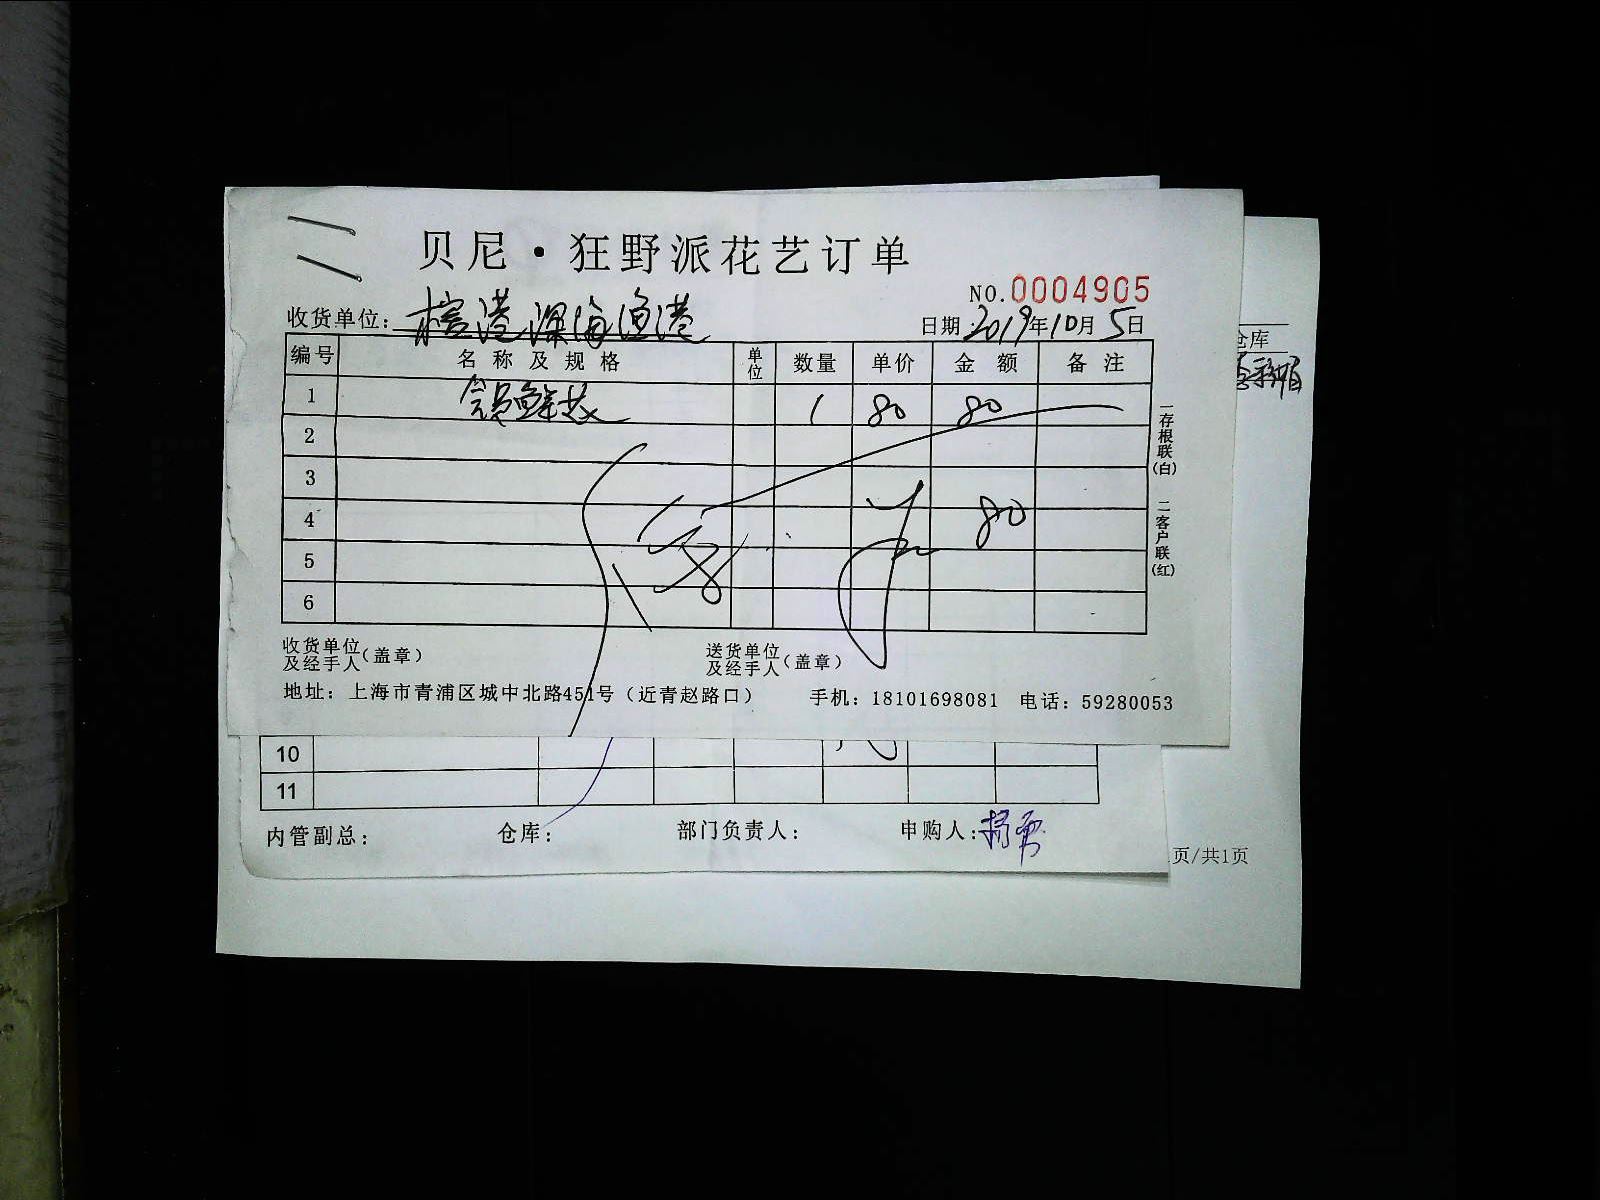 贝尼·狂野派花艺订单
NO.0004905
收货单位: 港深海渔港
日期:2019年10月5日
编号 名称及规格 单位 数量 单价 金额 备注
1 鲜花 1 80 80
2
3
4 80
5
6
一存根联(白) 二客户联(红)
收货单位及经手人(盖章)
送货单位及经手人(盖章)
地址：上海市青浦区城中北路451号（近青赵路口） 手机：18101698081 电话：59280053
仓库
10
11
内管副总： 仓库： 部门负责人： 申购人：
页/共1页